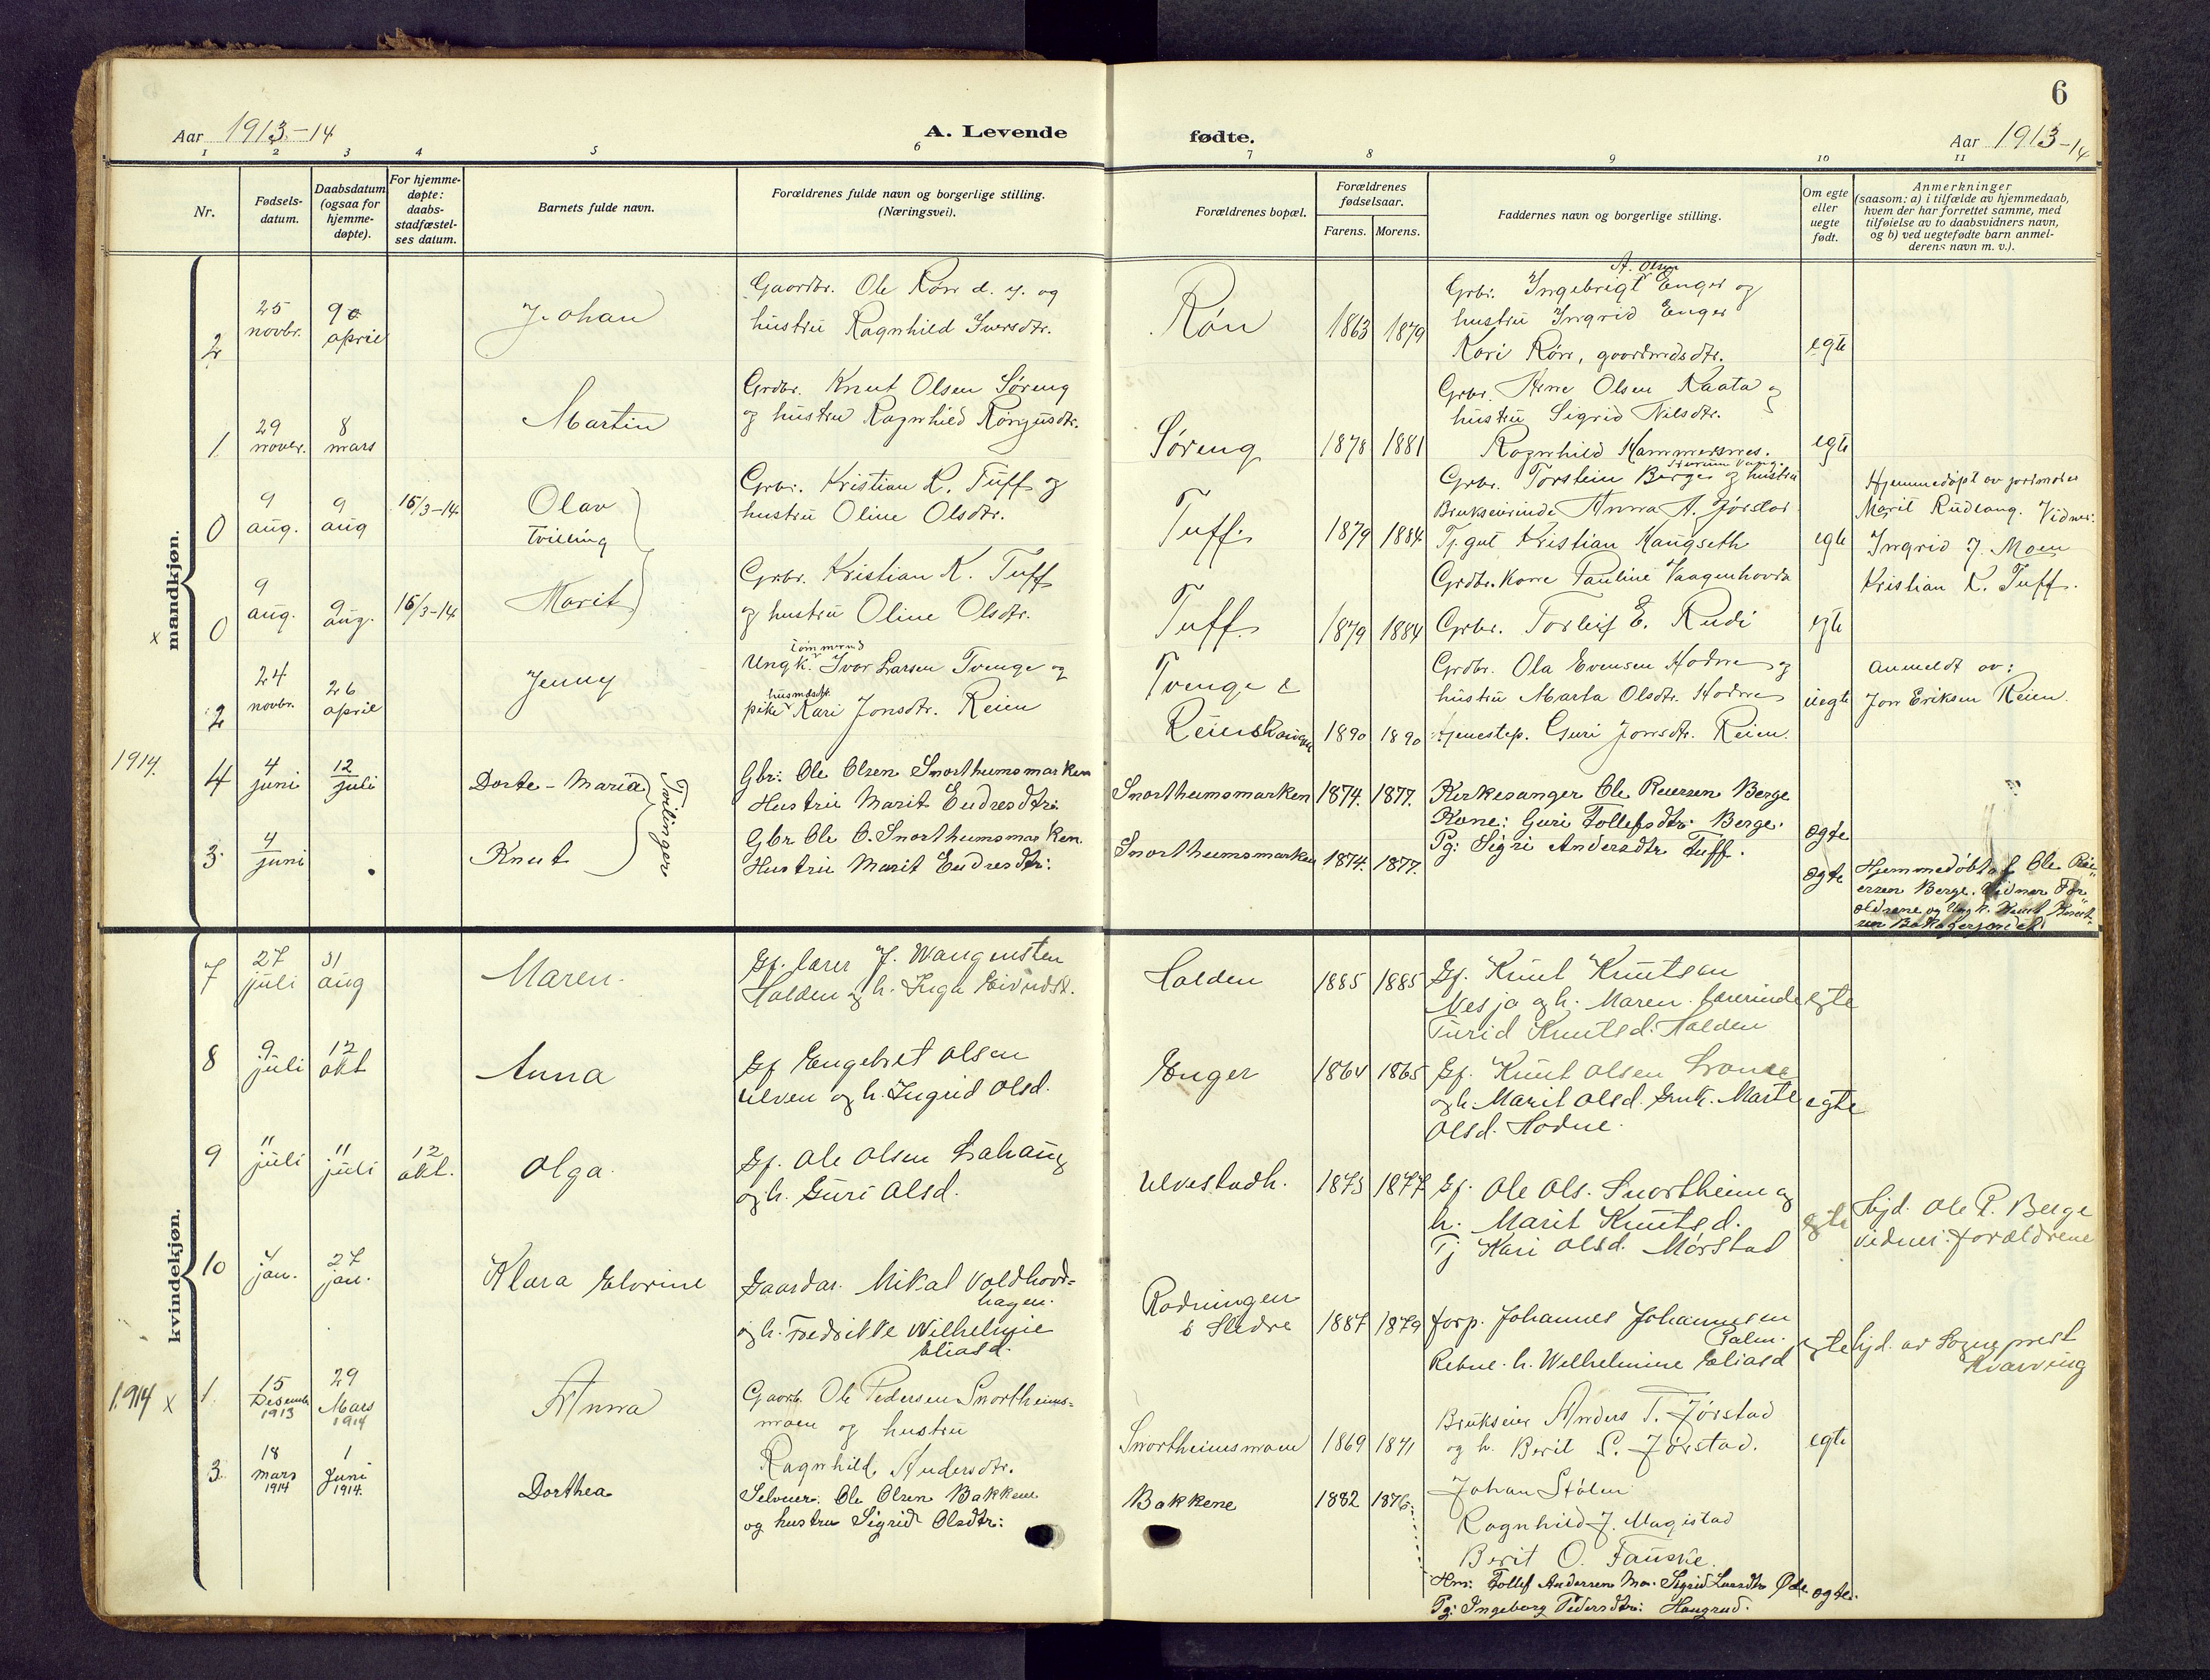 6
Aar 1913-14
A. Levende
fødte.
Aar 1913-14
1 2 3 4 5 6 7 8 9 10 11
Nr.
Fødsels-
datum.
Daabsdatum
(ogsaa for
hjemme-
døpte).
For hjemme-
døpte:
daabs-
stadfæstel-
ses datum.
Barnets fulde navn.
Forældrenes fulde navn og borgerlige stilling.
(Næringsvei).
Forældrenes bopæl.
Forældrenes
fødselsaar.
Farens. Morens.
Faddernes navn og borgerlige stilling.
Om egte
eller
uegte
født.
Anmerkninger
(saasom: a) i tilfælde av hjemmedaab,
hvem der har forrettet samme, med
tilføielse av to daabsvidners navn,
og b) ved uegtefødte barn anmel-
derens navn m. v.).
mandkjøn.
x
2
25
novbr.
9
april
Johan
Gaardbr. Ole Røn d. y. og
hustru Ragnhild Iversdtr.
Røn
1863 1879
A. Olsen
Grbr. Ingebrigt Enger og
hustru Ingrid Enger
Kari Røn, gaardmdsdtr.
egte
1
29
novbr.
8
mars
Martin
Grdbr. Knut Olsen Søreng
og hustru Ragnhild Rongusdtr.
Søreng
1878 1881
Grbr. Arne Olsen Raata og
hustru Sigrid Nilsdtr.
Ragnhild Hammersnes.
egte
0
9
aug.
9
aug
15/3-14
Olav
Tvilling
Grbr. Kristian K. Tuff og
hustru Oline Olsdtr.
Tuff.
1879 1884
Grbr. Torstein Berge og hustru
Brukseierinde Anna A. Jørstad
Tj. gut Kristian Haugseth
Grdbr. kone Pauline Vaagenhovda
egte
Hjemmedøpt av jordmoder
Marit Rudlang. Vidner:
Ingrid J. Moen
Kristian K. Tuff.
0
9
aug.
9
aug.
15/3-14
Marit
Grbr. Kristian K. Tuff
og hustru Oline Olsdtr.
Tuff.
1879 1884
Grbr. Torleif E. Rudi
egte
2
24
novbr.
26
april
Jenny
tømmermd
Ungk. Ivar Larsen Tvenge og
husmdsdtr.
pike Kari Jonsdtr. Reien
Tvenge &
Reienshaugen
1890 1890
Grdbr. Ola Evensen Hodne og
hustru Marta Olsdtr. Hodne
tjenestep. Guri Jonsdtr. Reien.
uegte
Anmeldt av:
Jon Eriksen Reien.
1914.
4
4
juni
12
juli
Dorte-Maria
Tvilinger
Gbr: Ole Olsen Snortheimsmarken
Hustru Marit Endresdtr:
Snortheimsmarken
1874. 1877.
Kirkesanger Ole Reiersen Berge
Kone: Guri Tollefsdtr. Berge.
Pg: Sigri Andersdtr Tuff.
ogte
3
4
juni
Knut
Gbr Ole O. Snortheimsmarken.
Hustru Marit Endresdtr:
Snortheimsmarken
1874. 1877.
ogte
Hjemmedøbt af Ole Rei-
ersen Berge. Vidner For
ældrene og Ungk. Knut
kvindekjøn.
7
27
juli
31
aug
Maren.
Gf. lærer J. Wangensten
Halden og h. Inga Eivindsd.
Halden
1885 1885
Gf. Knut Knutsen
Nesja og h. Maren. lærerinde
Turid Knutsd. Halden
egte
8
9
juli
12
okt
Anna
Gf Engebret Olsen
Ulven og h. Ingrid Olsd.
Enger
1864 1865
Gf. Knut Olsen
og h. Marit Olsd. Gmk. Marte
Olsd. Hodne.
egte
9
11
juli
11
juli
12
okt.
Olga.
Gf. Ole Olsen Lahaug
og h. Guri Olsd.
Ulvestadh.
1873 1877
Gf. Ole Ols. Snortheim og
h. Marit Knutsd.
Tj Kari Olsd. Mørstad
egte
Hjd. Ole R. Berge
vidner: forældrene
10
4
jan.
27
jan.
Klara Elvrine
Gaardar. Mikal Voldhovd-
hagen.
og h. Fredrikke Wilhelmine
Eliasd.
Rodningen
S Slidre
1887 1879
forp. Johannes Johannesen
Palm.
Rebne. h. Wilhelmine Eliasd
egte
hjd. av Sogneprest
Kvarving
1914 x
1.
15
Desember
1913
29
Mars
1914
Anna
Gaardb. Ole Pedersen Snortheims-
moen og hustru
Ragnhild Andersdtr.
Snortheimsmoen
1869 1871
Brukseier Anders T. Jørstad
og h. Berit S. Jørstad.
Johan Stølen
Ragnhild J. Magistad
Berit O. Fauske.
egte
3.
18
mars
1914
1
Juni
1914.
Dorthea
Selveier. Ole Olsen Bakkene
og hustru Sigrid Olsdtr:
Bakkene
1882 1876.
Hm: Tollef Andersen Mo. Sigrid Larsdtr
Pg: Ingeborg Pedersdtr: Haugrud.
ogte.